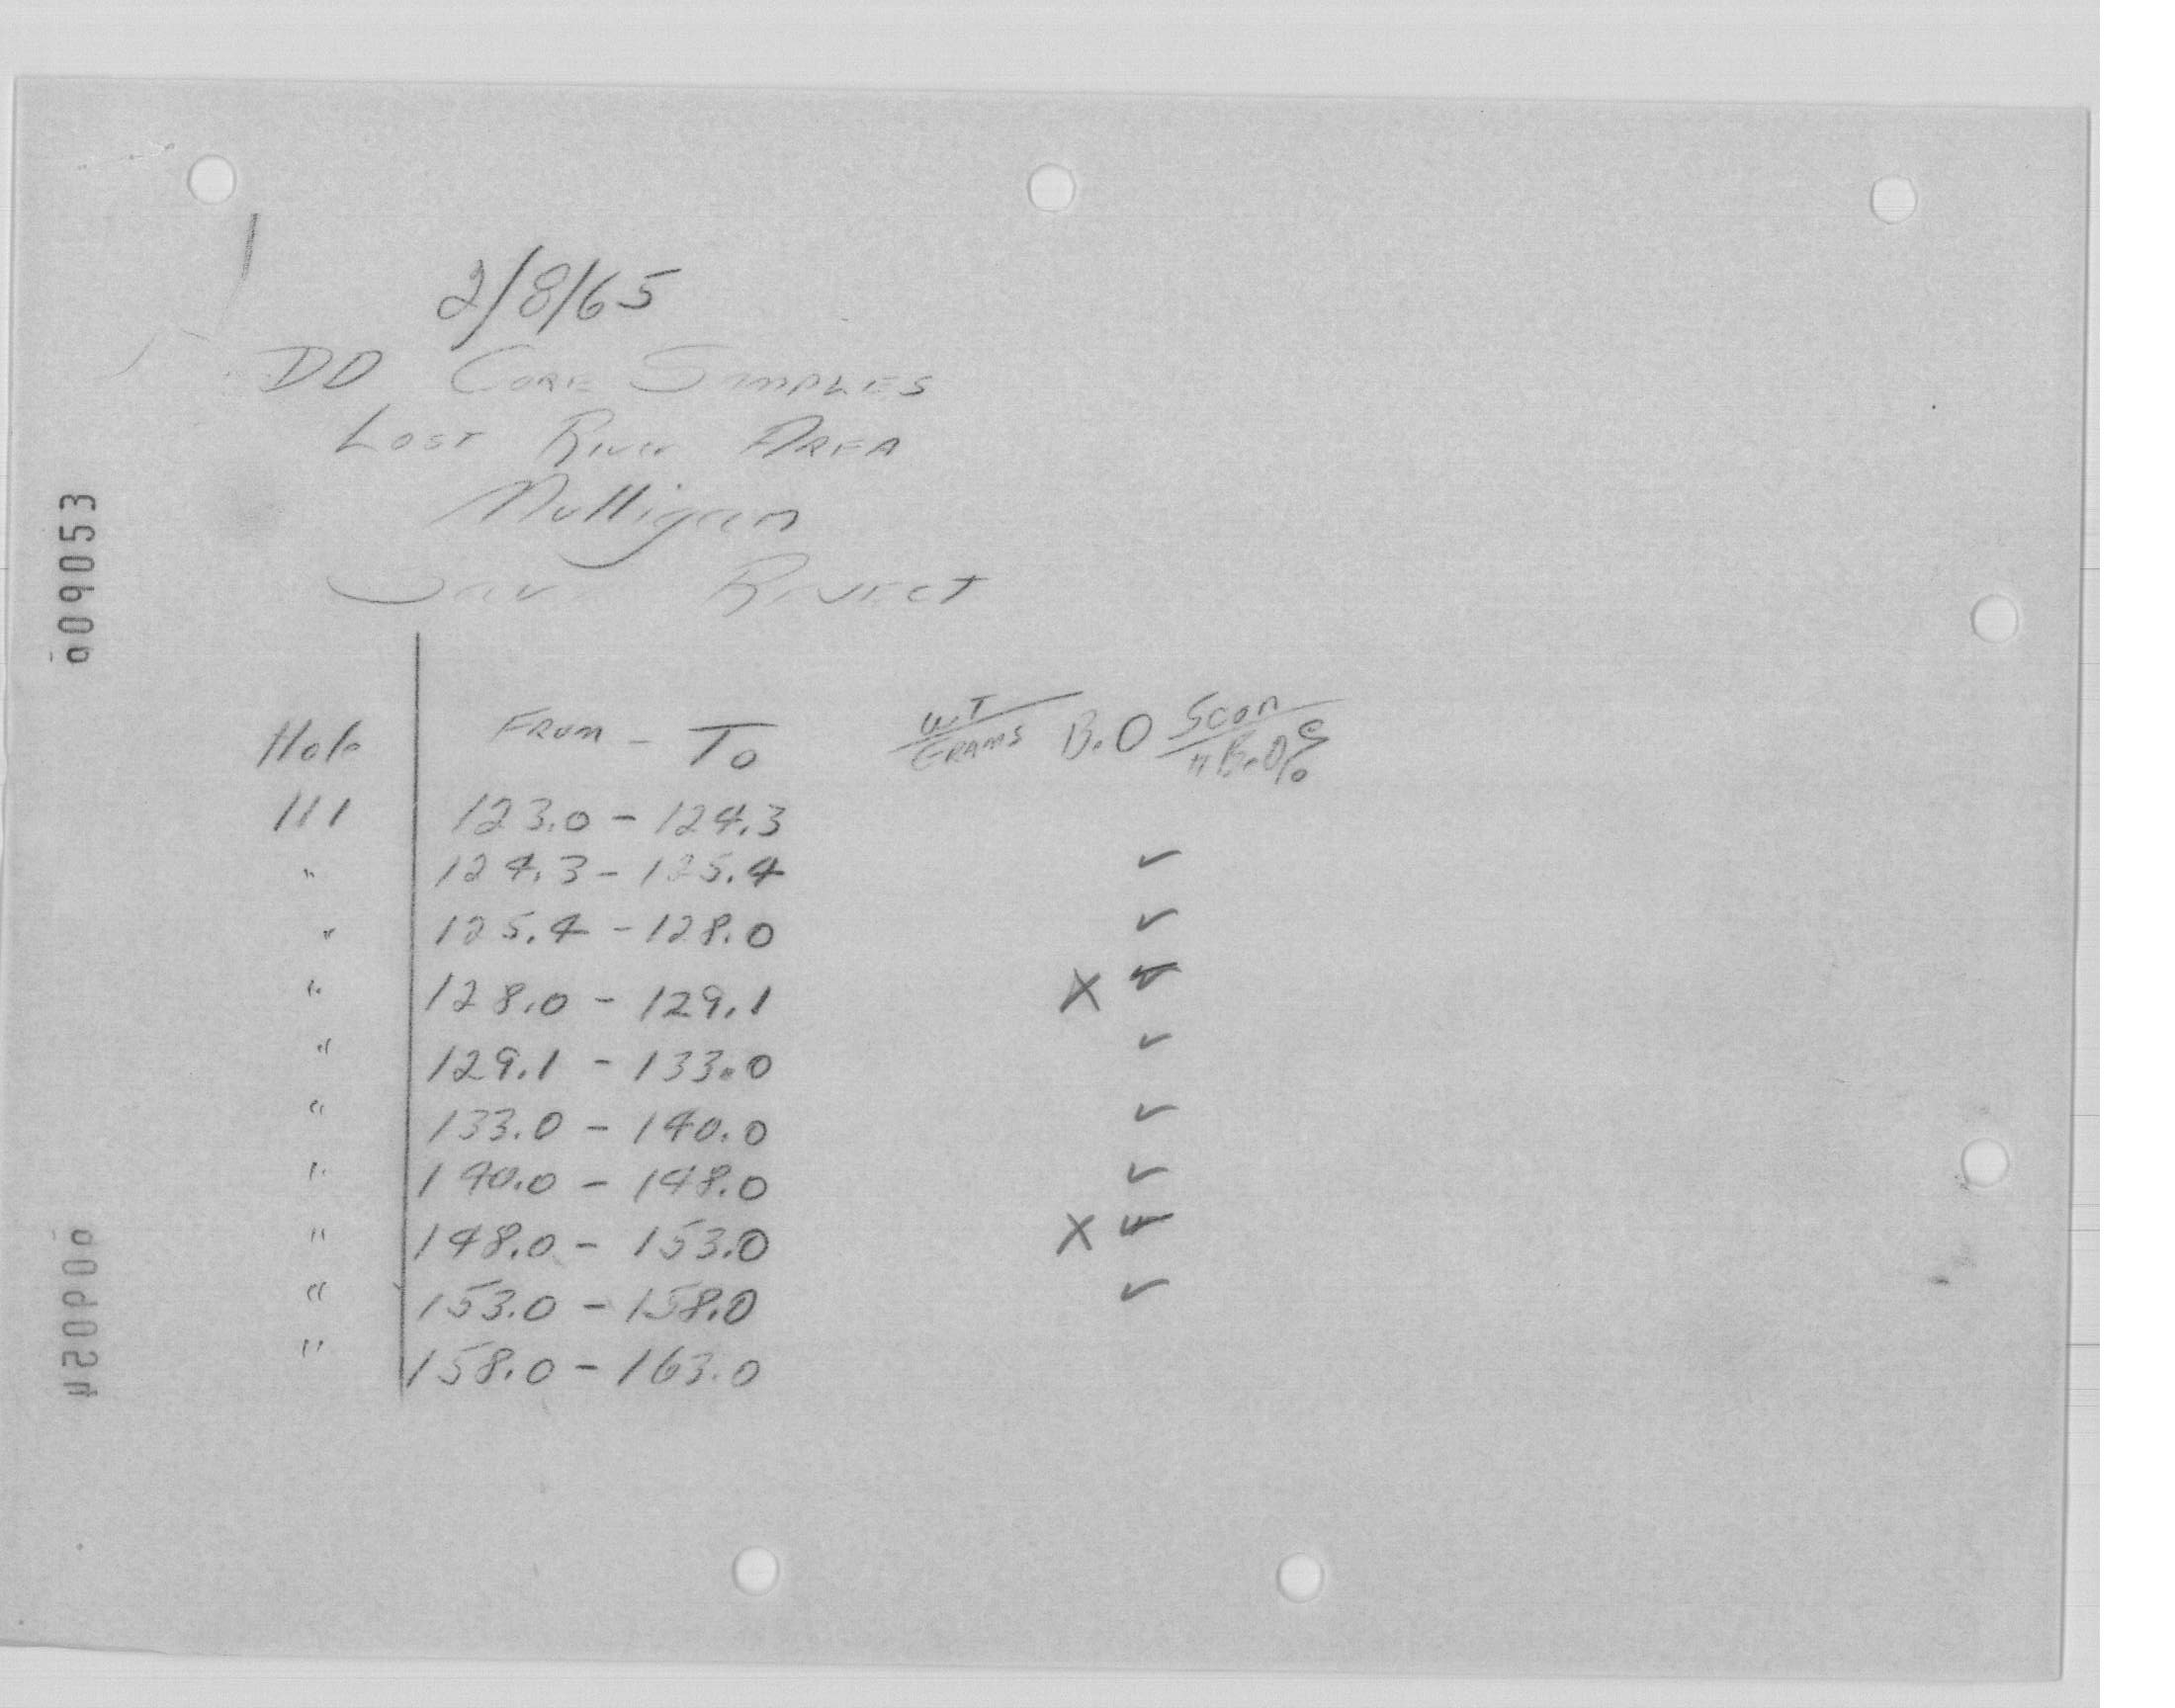 2/8/65
DD CORE SAMPLES
LOST River AREA
Mulligan
Save REJECT
009053
Hole FROM - To WT/GRAMS BeO Scan
" BeO %
111 123.0 - 124.3
" 124.3 - 125.4 ✓
" 125.4 - 128.0 ✓
" 128.0 - 129.1 X ✓
" 129.1 - 133.0 ✓
" 133.0 - 140.0 ✓
" 140.0 - 148.0 ✓
" 148.0 - 153.0 X ✓
" 153.0 - 158.0 ✓
" 158.0 - 163.0